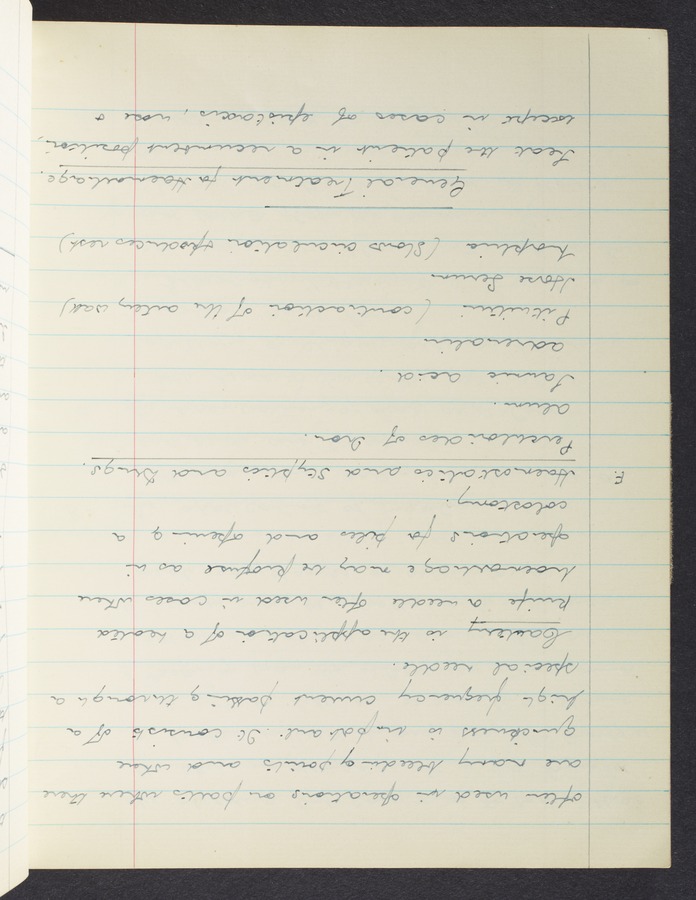 often used in operations on parts where there
are many bleeding points and where
quickness is important. It consists of a
high frequency current passing through a
special needle.
Cautery is the application of a heated
knife or needle often used in cases where
haemorrhage may be profuse as in
operations for piles and opening a
colostomy.
F. Haemostatics and Styptics and Drugs.
Perchlorides of Iron.
Alum.
Tannic acid.
adrenalin
Pituitrin (contraction of the artery wall)
Horse Serum
Morphia (Slows circulation & produces rest)
General Treatment for Haemorrhage.
Treat the patient in a recumbent position,
except in cases of epistaxis, nose &